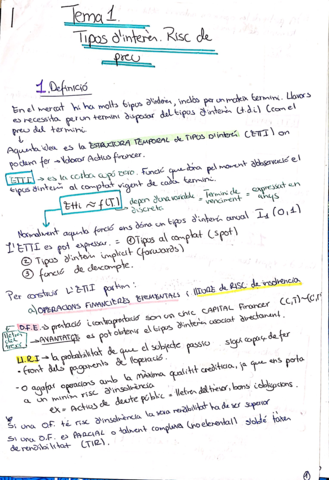 Tema 1.
Tipos d'interès. Risc de
preu
1. Definició
En el mercat hi ha molts tipus d'interès, inclús per un mateix termini. Llavors
es necessita per un termini disposar del tipus d'interès (t.d.i) (com el
preu del termini.
Aquesta idea es la ESTRUCTURA TEMPORAL de TIPOS d'interès (ETI) on
podem fer valorar Actius financer.
ETTI → es la corba cupó zero. Funció que dóna pel moment d'observació el
tipus d'interès al comptat vigent de cada termini.
ETTI ≈ f(T)
depen d'una variable discreta
Termini de venciment
= expressat en anys
Normalment aquesta funció ens dóna un tipus d'interès anual I1 (0,1)
L'ETTI es pot expressar = ① Tipos al comptat (spot)
② Tipos d'interès implícit (forwards)
③ funció de descompte.
Per construir L'ETTI partim:
a) OPERACIONS FINANCERES ELEMENTALS i LLIURE de RISC de insolvència
O.F.E → prestació i contraprestació son un únic CAPITAL Financer (C,T)
AVANTATGE es pot obtenir el tipus d'interès associat directament.
LL.R.I → la probabilitat de que el subjecte passiu sigui capaç de fer
front dels pagaments de l'operació.
· O agafar operacions amb la màxima qualitat creditícia, ja que ens porta
a un mínim risc d'insolvència
ex = Actius de deute públic = lletres del tresor, bons i obligacions.
Si una O.F. té risc d'insolvència la seva rendibilitat ha de ser superior
Si una O.F. es PARCIAL o talvent complexa (no elemental)
de rendibilitat (TIR).